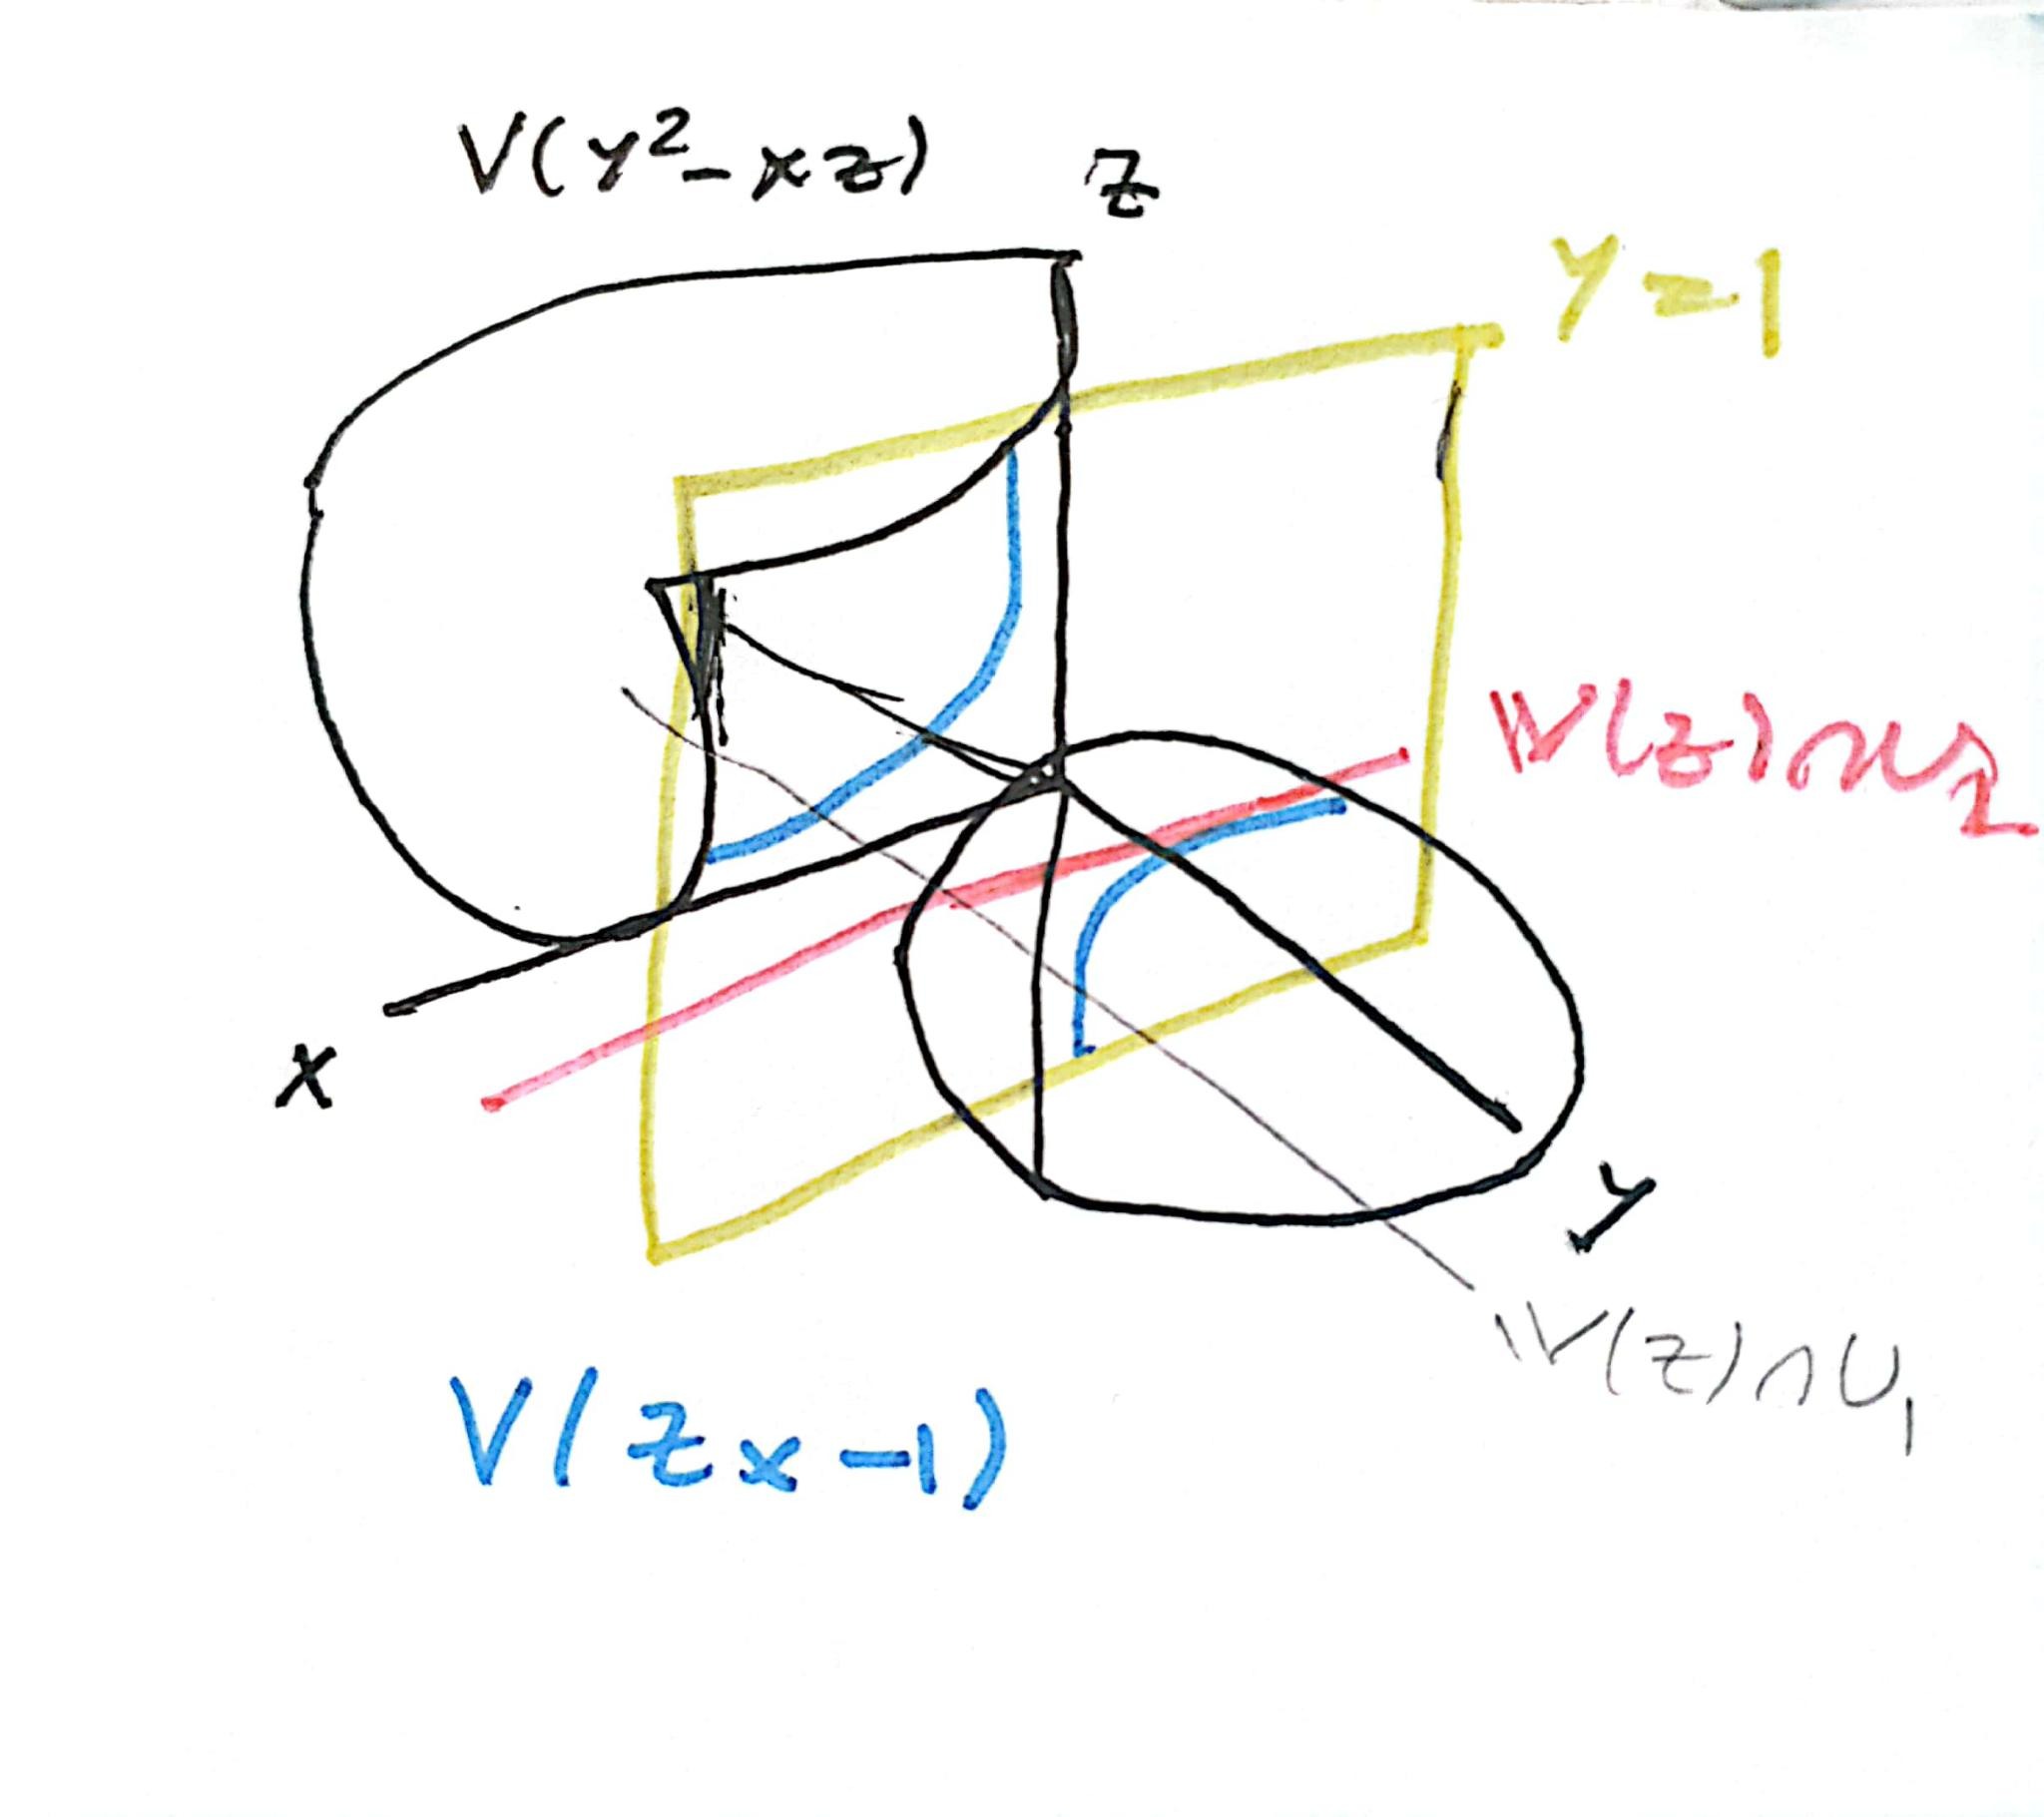 V(y²-xz)
z
y=1
V(z)∩U₂
x
y
V(z)∩U₁
V(zx-1)